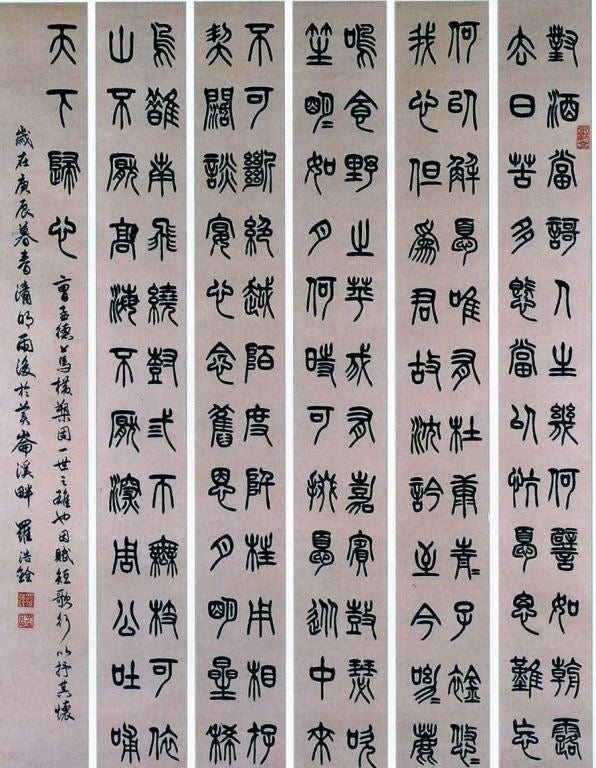 對酒當謌人生幾何譬如朝露
去日苦多慨當以忼憂思難忘
何以解憂唯有杜康青〻子衿悠〻
我心但為君故沈吟至今呦〻鹿
鳴食野之苹我有嘉賓鼓瑟吹
笙明〻如月何時可掇憂從中來
不可斷絕越陌度阡枉用相存
契闊談宴心念舊恩月明星稀
烏鵲南飛繞樹弎帀無枝可依
山不厭高海不厭深周公吐哺
天下歸心 曹孟德上馬橫槊固一世之雄也因賦短歌行以抒其懷
歲在庚辰暮春清明雨後於黃崙溪畔 羅浩銓